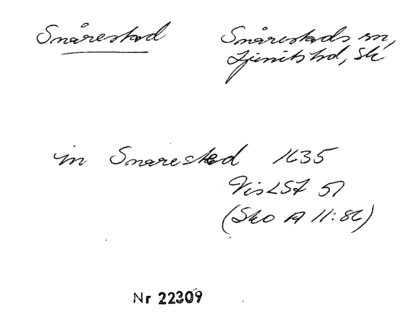 Snårestad
Snårestads sn,
Ljunits hd, Sk
in Snarestad 1635
VisLSF 51
(Sko A II:86)
Nr 22309